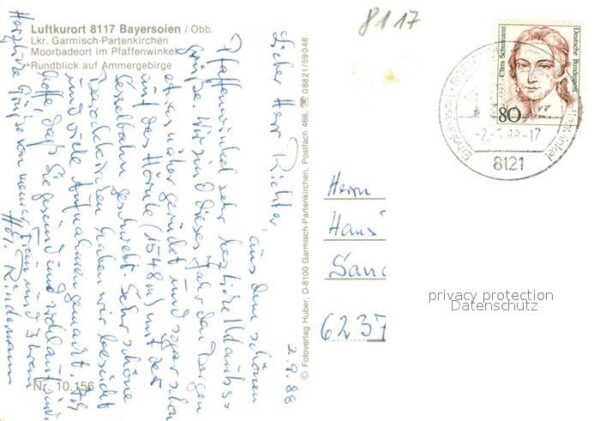 Luftkurort 8117 Bayersoien / Obb.
Lkr. Garmisch-Partenkirchen
Moorbadeort im Pfaffenwinkel
Rundblick auf Ammergebirge
8117
Clara Schumann
Deutsche Bundespost
80
8121
2.9.88
Lieber Herr Richter,
aus dem schönen
Pfaffenwinkel sehr herzliche Urlaubs-
grüße. Wir sind dieses Jahr den Bergen
etwas näher gerückt und sogar schon
auf das Hörnle (1548 m) mit der
Sesselbahn geschwebt. Sehr schöne
haben wir
und viele Aufnahmen gemacht. Ich
hoffe, daß Sie gesund und wohlauf sind.
Herzliche Grüße von meiner Frau und Ihrem
© Fotoverlag Huber, D-8100 Garmisch-Partenkirchen, Postfach 466, ☎ 08821/59048
Herrn
Hans
Sanc
6237
privacy protection
Datenschutz
Nr. 10.156